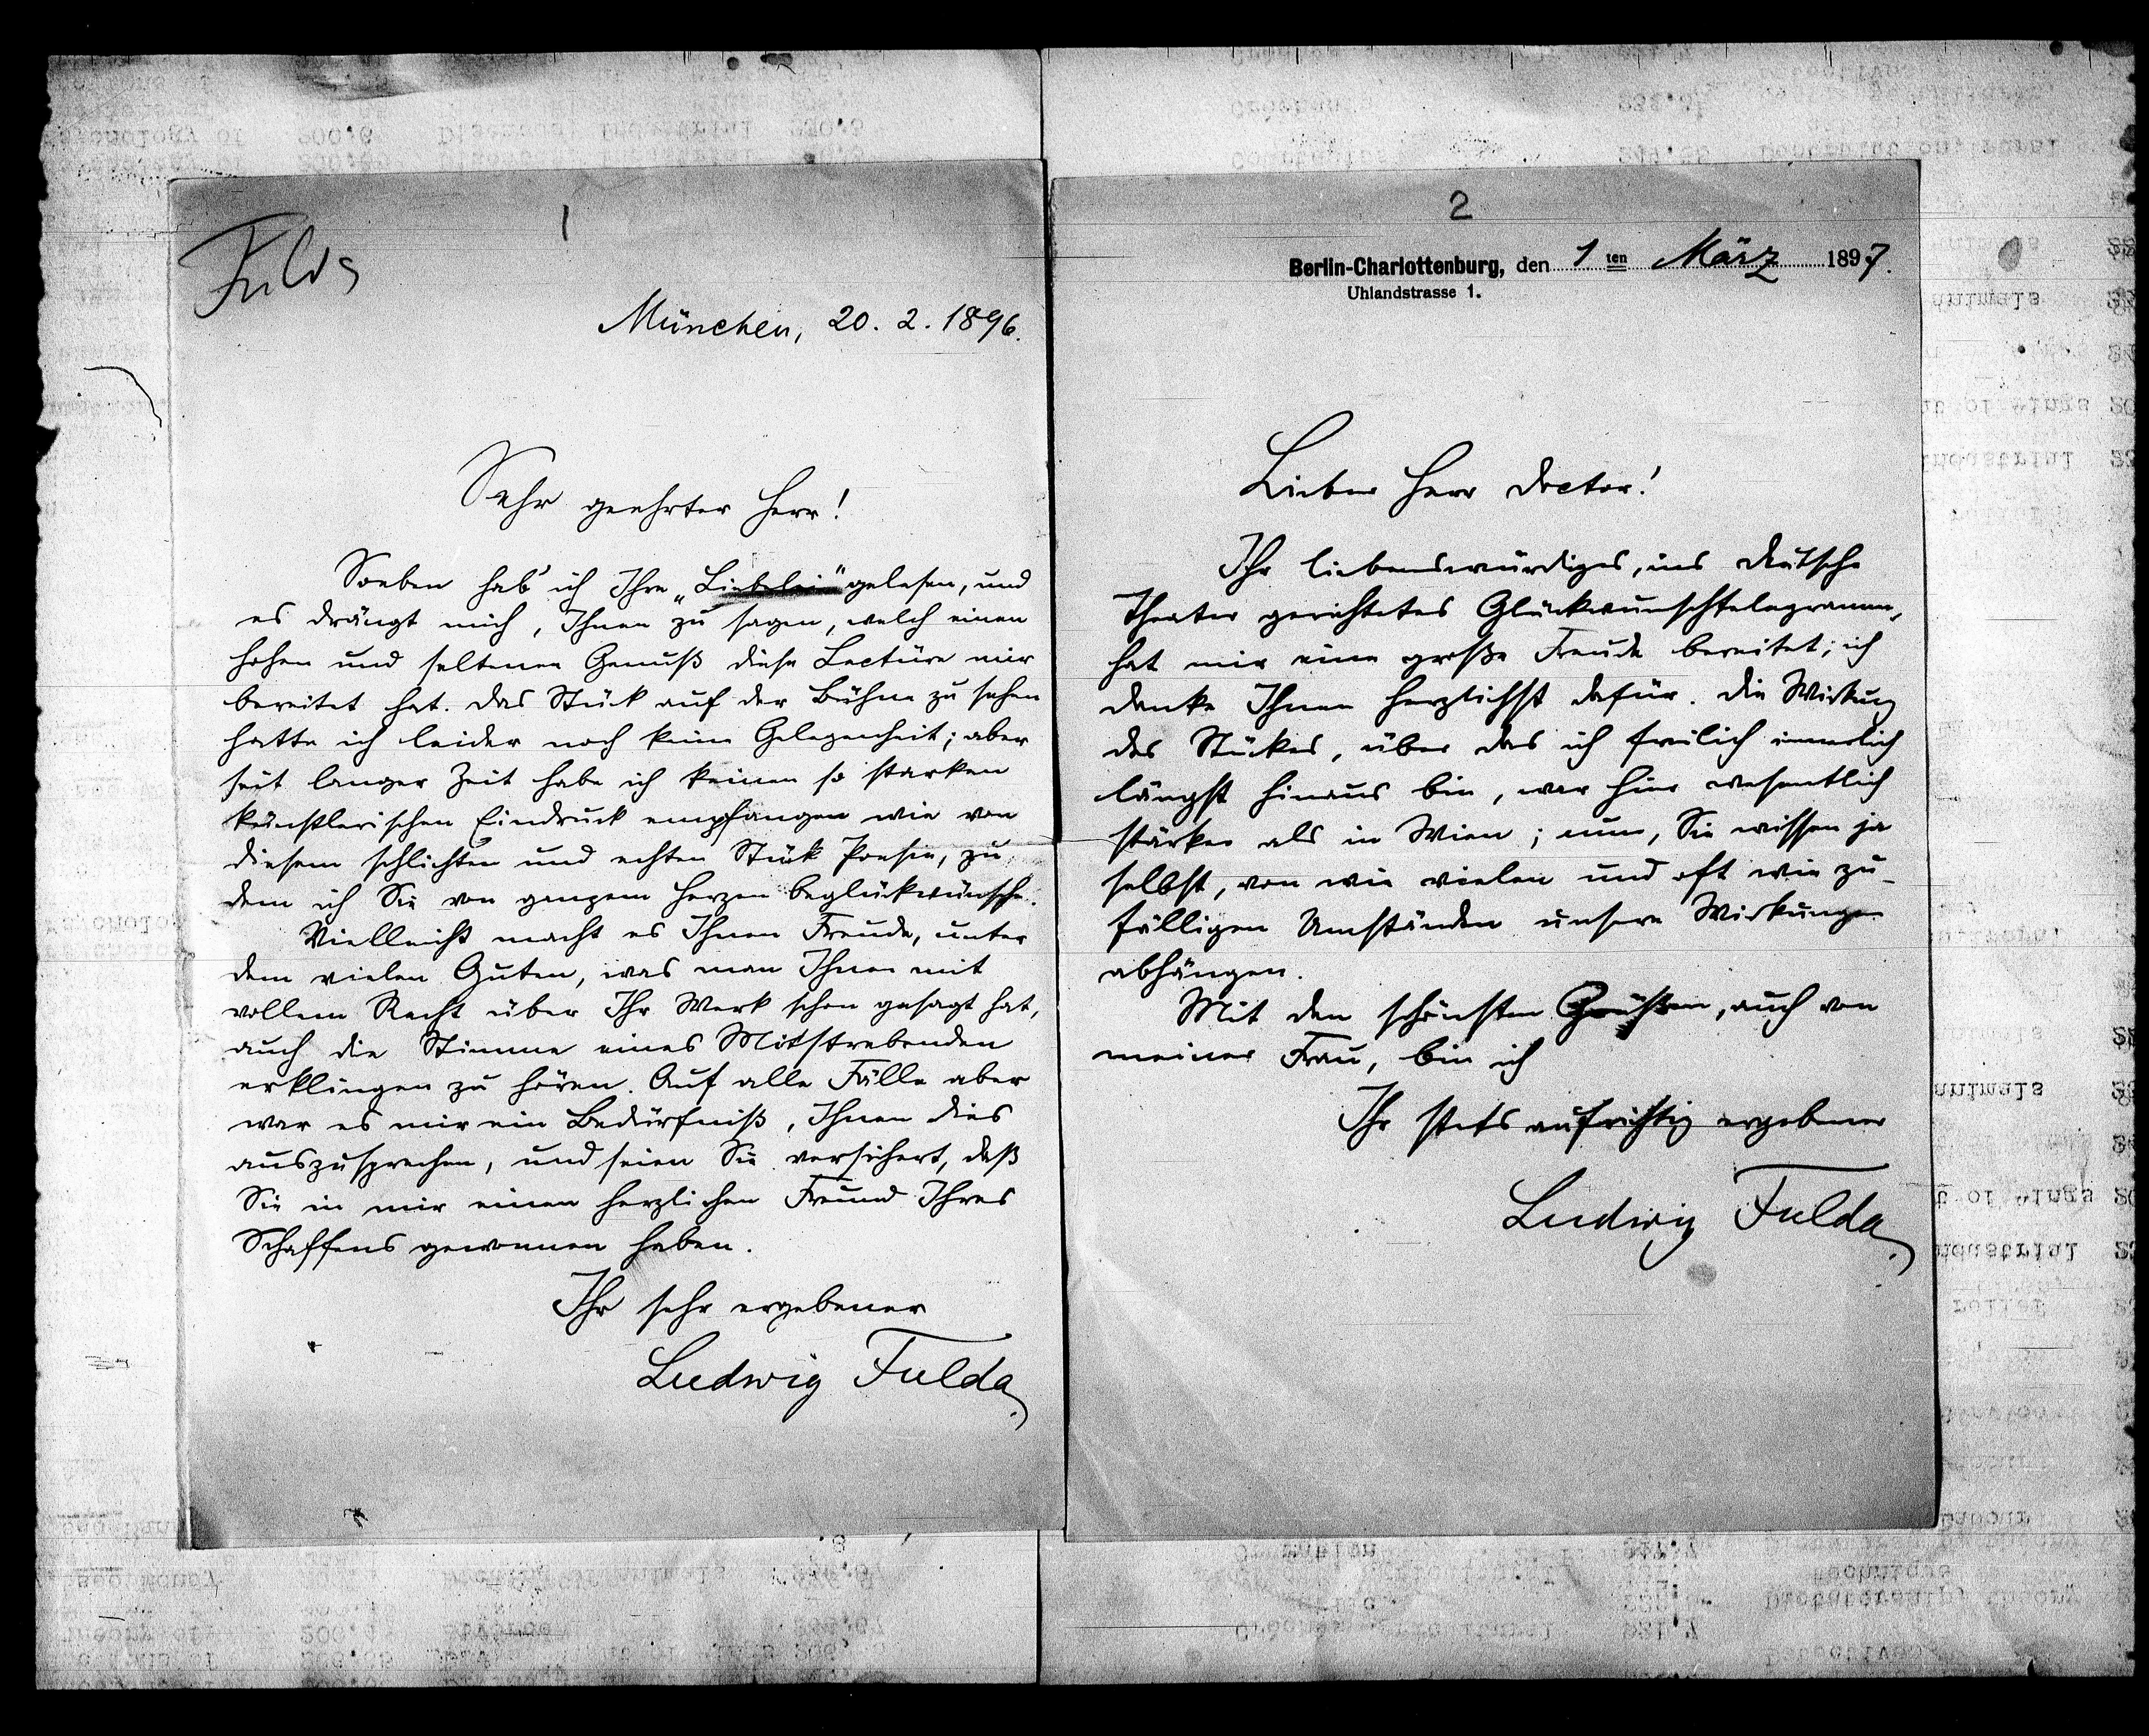 1
Fulda
München, 20. 2. 1896.
Sehr geehrter Herr!
Soeben hab' ich Ihre „Liebelei" gelesen, und
es drängt mich, Ihnen zu sagen, welch einen
hohen und seltenen Genuß diese Lectüre mir
bereitet hat. Das Stück auf der Bühne zu sehen
hatte ich leider noch keine Gelegenheit; aber
seit langer Zeit habe ich keinen so starken
künstlerischen Eindruck empfangen wie von
diesem schlichten und echten Stück Poesie, zu
dem ich Sie von ganzem Herzen beglückwünsche.
Vielleicht macht es Ihnen Freude, unter
dem vielen Guten, was man Ihnen mit
vollem Recht über Ihr Werk schon gesagt hat,
auch die Stimme eines Mitstrebenden
erklingen zu hören. Auf alle Fälle aber
war es mir ein Bedürfniß, Ihnen dies
auszusprechen, und seien Sie versichert, daß
Sie in mir einen herzlichen Freund Ihres
Schaffens gewonnen haben.
Ihr sehr ergebener
Ludwig Fulda.
2
Berlin-Charlottenburg, den 1 ten März 1897.
Uhlandstrasse 1.
Lieber Herr Doctor!
Ihr liebenswürdiges, ins Deutsche
Theater gerichtetes Glückwunschtelegramm,
hat mir eine große Freude bereitet; ich
danke Ihnen herzlichst dafür. Die Wirkung
des Stückes, über das ich freilich innerlich
längst hinaus bin, war hier wesentlich
stärker als in Wien; nun, Sie wissen ja
selbst, von wie vielen und oft wie zu-
fälligen Umständen unsere Wirkungen
abhängen.
Mit den schönsten Grüßen, auch von
meiner Frau, bin ich
Ihr stets aufrichtig ergebener
Ludwig Fulda.